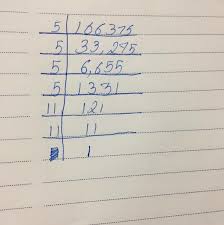 5 | 166375
5 | 33,275
5 | 6,655
5 | 1331
11 | 121
11 | 11
| 1